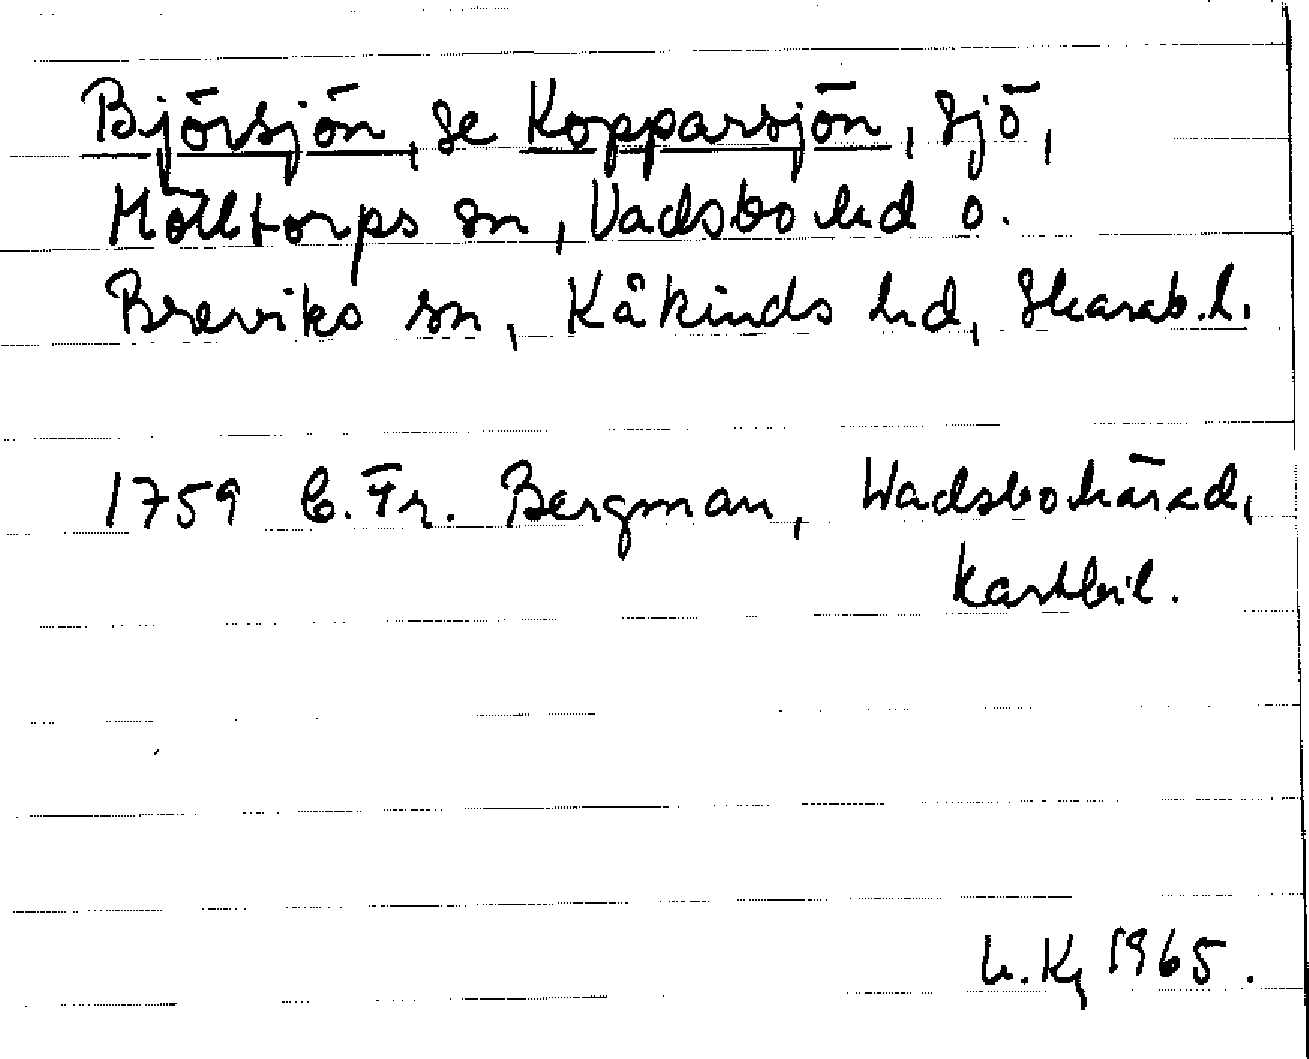 Björsjön, se Kopparsjön, sjö,
Mölltorps sn, Vadsbo hd o.
Breviks sn, Kåkinds hd, Skarab.l.
1759 C. Fr. Bergman, Wadsbohärad,
kartbil.
h.Kg 1965.